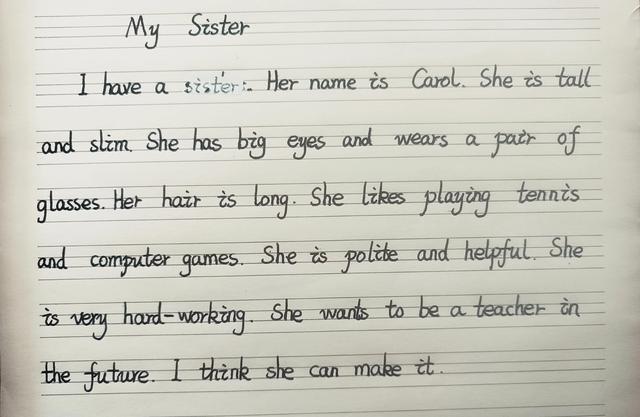 My Sister
I have a sister. Her name is Carol. She is tall
and slim. She has big eyes and wears a pair of
glasses. Her hair is long. She likes playing tennis
and computer games. She is polite and helpful. She
is very hard-working. She wants to be a teacher in
the future. I think she can make it.